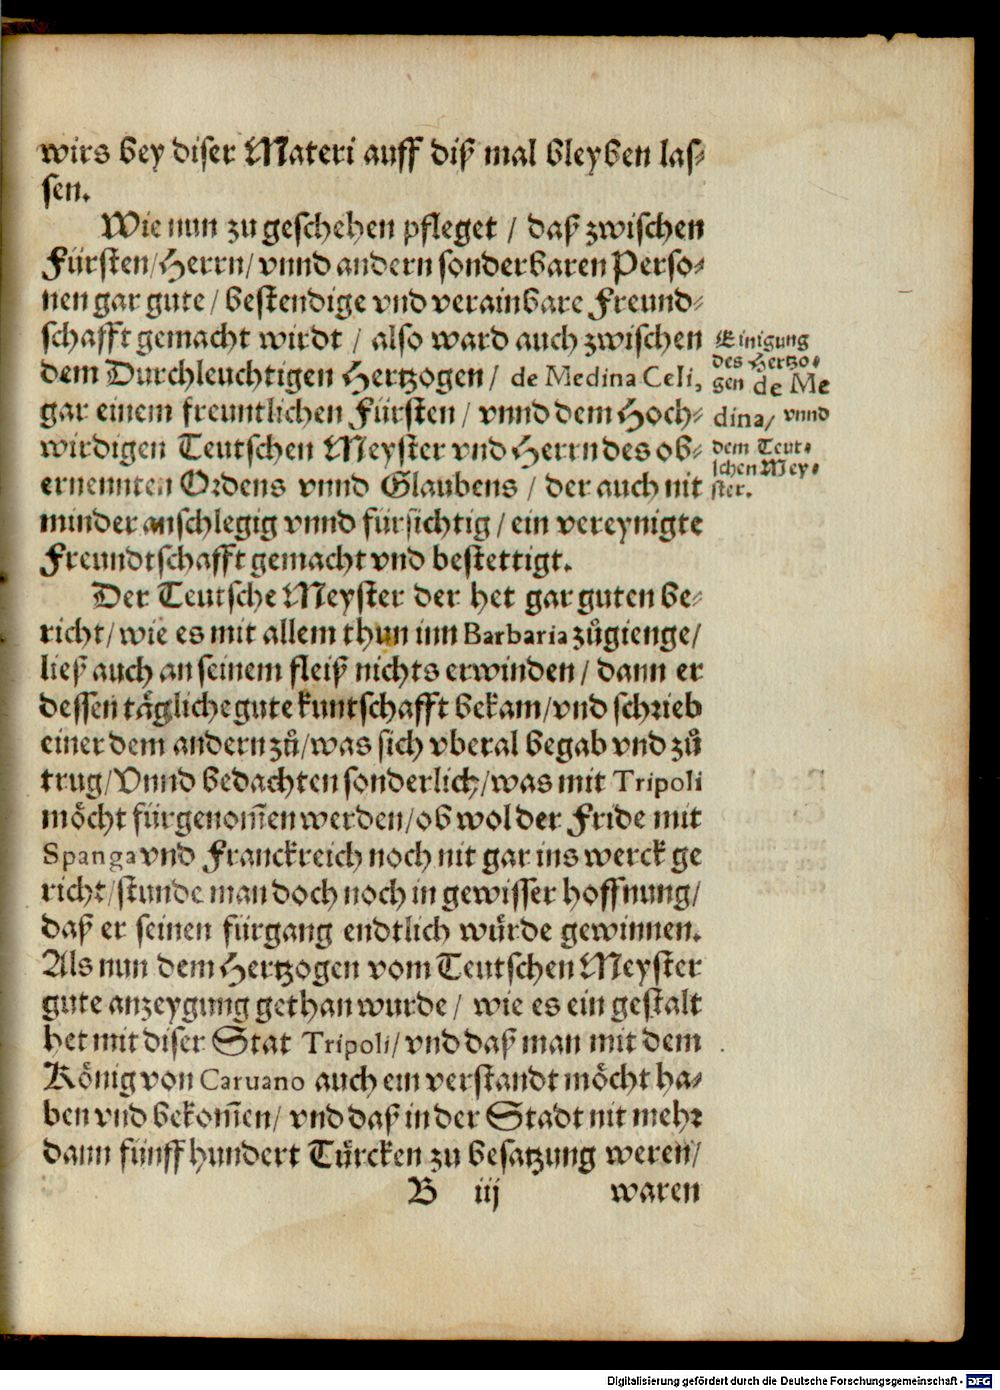 wirs bey diser Materi auff diß mal bleyben las⸗
sen.
Wie nun zu geschehen pfleget / daß zwischen
Fürsten/Herrn/ vnnd andern sonderbaren Perso⸗
nen gar gute / bestendige vnd verainbare Freund⸗
schafft gemacht wirdt / also ward auch zwischen
dem Durchleuchtigen Hertzogen / de Medina Celi,
gar einem freuntlichen Fürsten / vnnd dem Hoch⸗
wirdigen Teutschen Meyster vnd Herrn des ob⸗
ernennten Ordens vnnd Glaubens / der auch nit
minder anschlegig vnnd fürsichtig / ein vereynigte
Freundtschafft gemacht vnd bestettigt.
Einigung
des Hertzo⸗
gen de Me
dina/ vnnd
dem Teut⸗
schen Mey⸗
ster.
Der Teutsche Meyster der het gar guten be⸗
richt/ wie es mit allem thun inn Barbaria zůgienge/
ließ auch an seinem fleiß nichts erwinden / dann er
dessen täglich gute kuntschafft bekam/vnd schrieb
einer dem andern zů/was sich vberal begab vnd zů
trug/Vnnd bedachten sonderlich/was mit Tripoli
möcht fürgenom̄en werden/ob wol der Fride mit
Spanga vnd Franckreich noch nit gar ins werck ge
richt/stunde man doch noch in gewisser hoffnung/
daß er seinen fürgang endtlich würde gewinnen.
Als nun dem Hertzogen vom Teutschen Meyster
gute anzeygung gethan wurde / wie es ein gestalt
het mit diser Stat Tripoli/ vnd daß man mit dem
König von Caruano auch ein verstandt möcht ha⸗
ben vnd bekom̄en/ vnd daß in der Stadt nit mehr
dann fünff hundert Türcken zu besatzung weren/
B iij waren
Digitalisierung gefördert durch die Deutsche Forschungsgemeinschaft - DFG